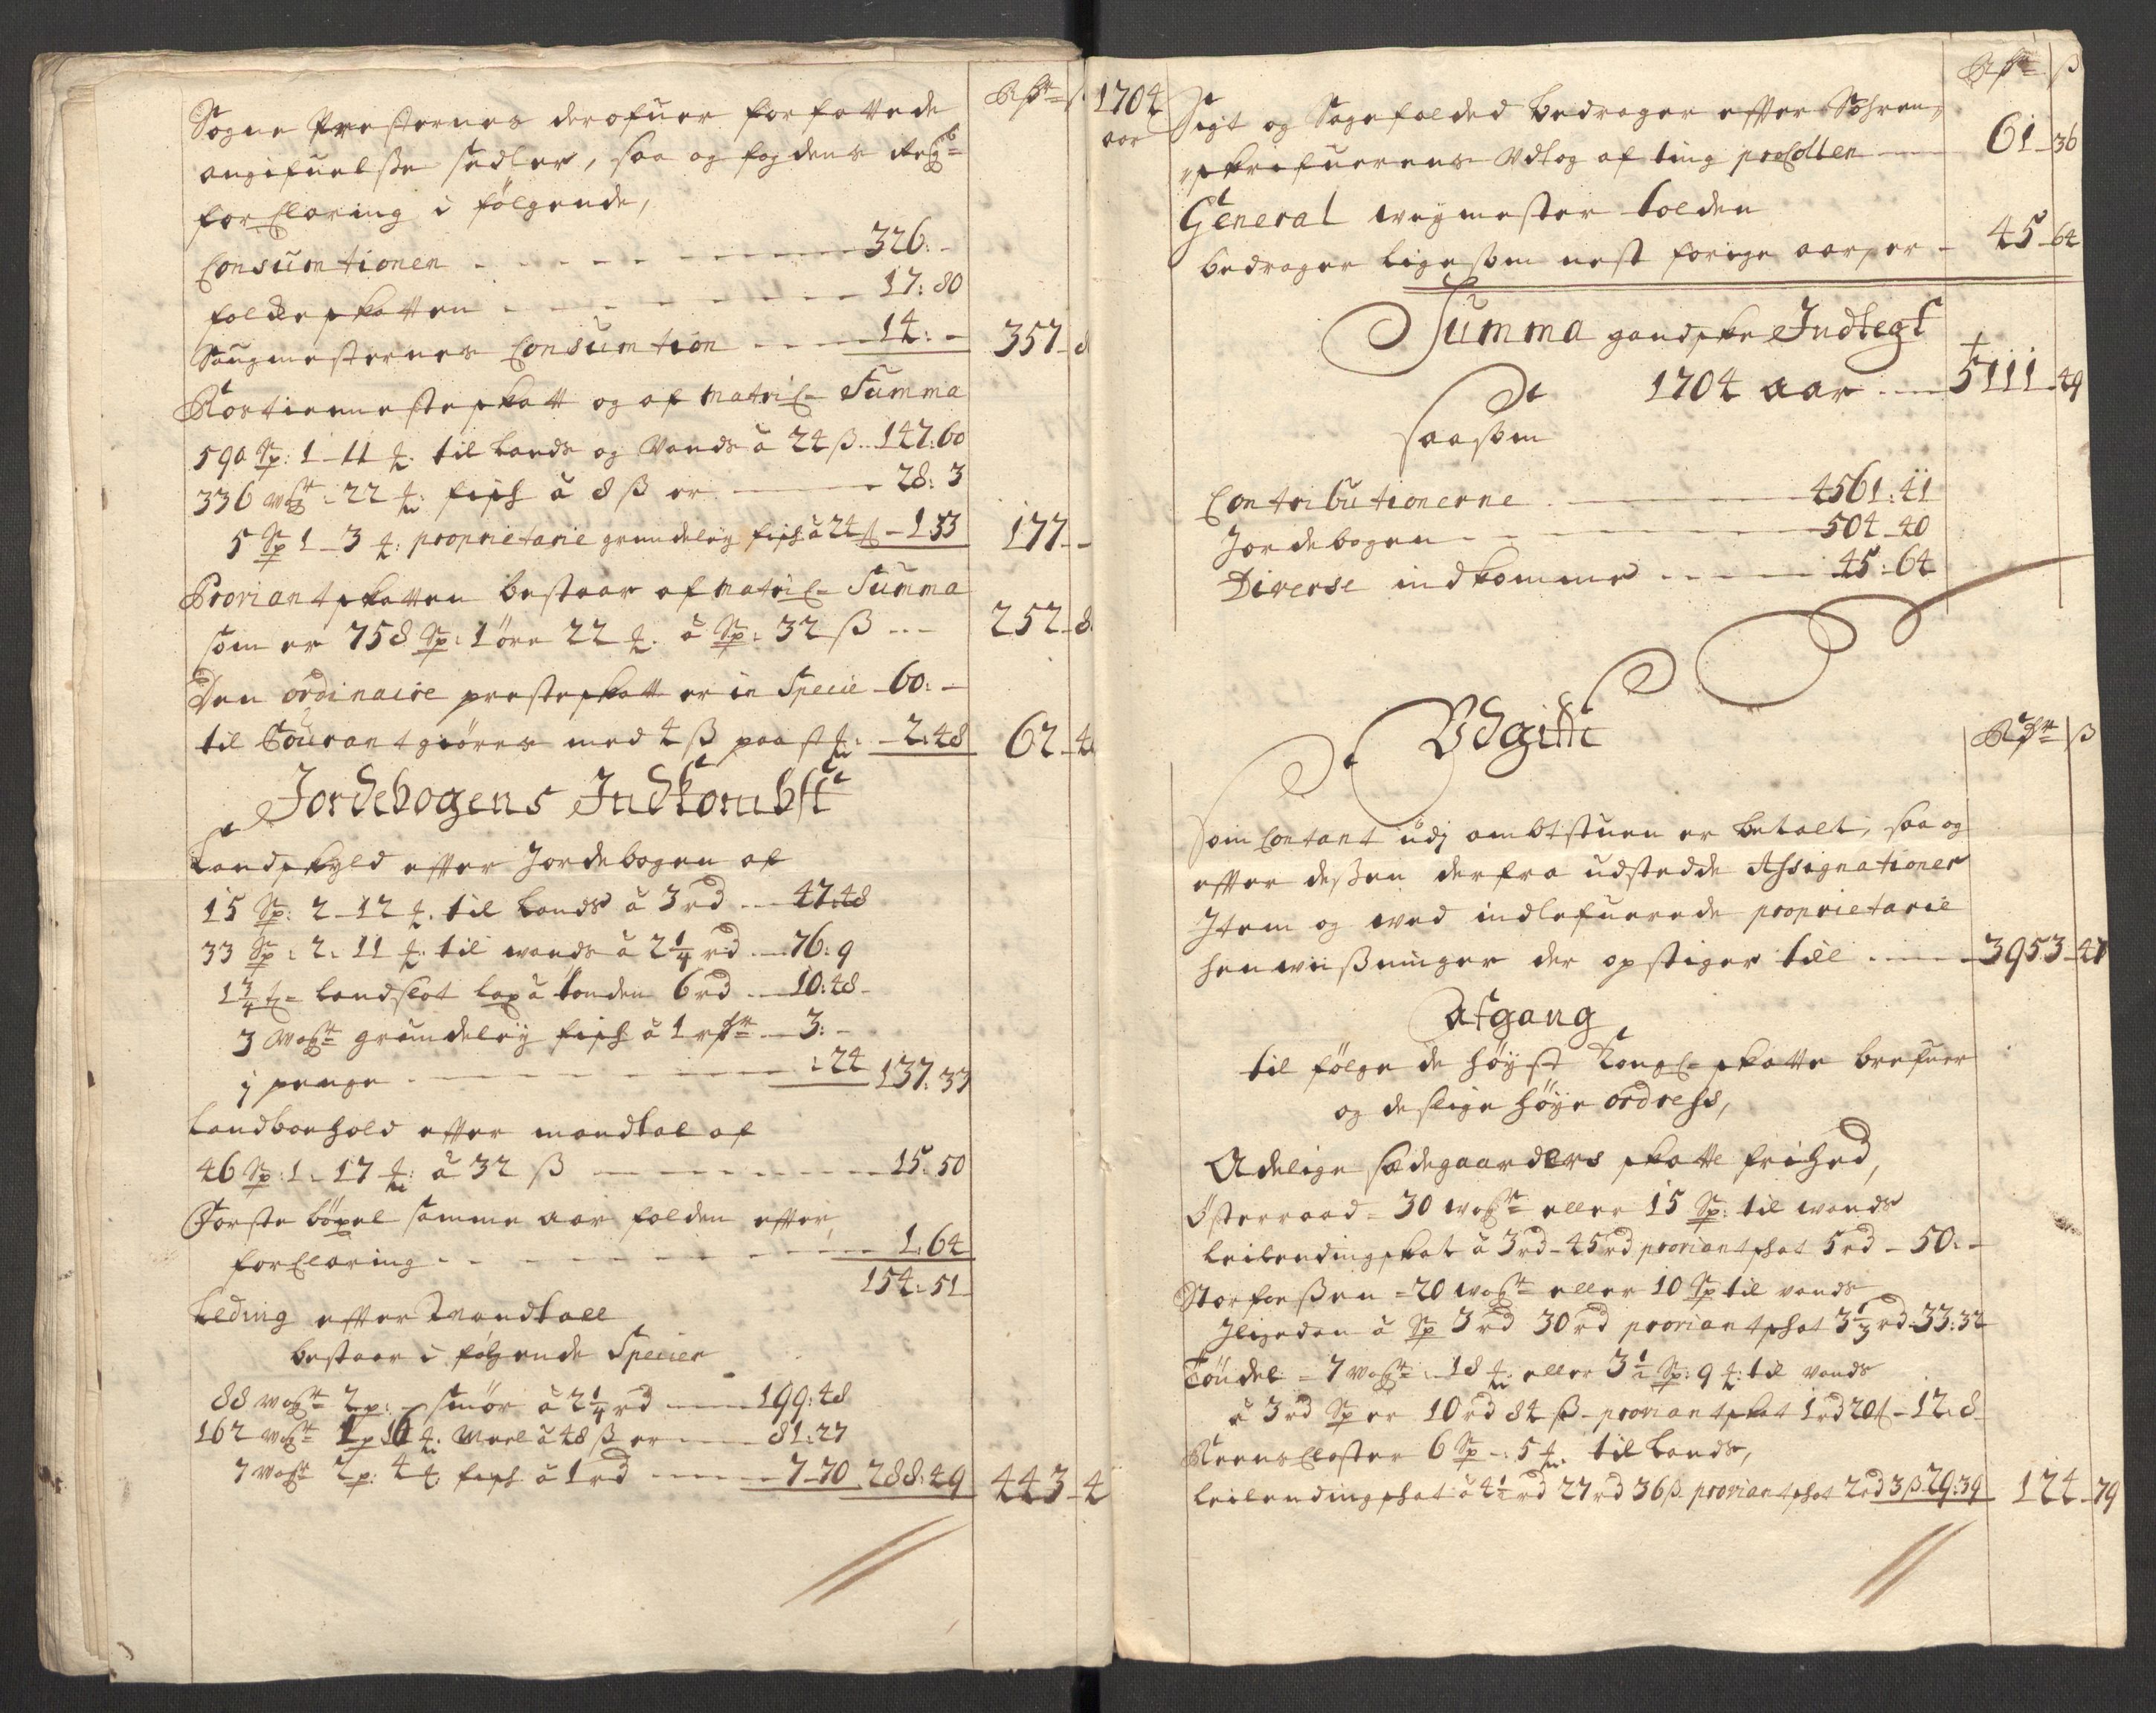 Rdr ß
Sogne Presternes derofuer forfattede
angifuelsse sedler, saa og fogdens
forClaring i følgende,
Consumtionen - - - - - 326: -
folcke skatten - - - - - 17: 80
Saugmesternes Consumtion - - - 14: - 357-8
Rostieneste skatt og af Matric= Summa
590 Sp: 1-11 til Lands og Vands â 24 ß - 147:60
336 - 22 fisch â 8 ß er - 28: 3
5 Sp 1-3 proprietarie grundeleÿ fisch â 24 ß - 1 33 177 - -
Proviant skatten bestaar af Matric= Summa
som er 758 Sp: 1 öre 22 â Sp: 32 ß - - 252-8
Den ordinaire presteskatt er in Specie - 60: -
til Courant giöres med 4 ß paa - 2:48 62-4
Jordebogens Indkombst
Landskyld efter Jordebogen af
15 Sp: 2-12 til Lands â 3 rd - 47:48
33 Sp: 2: 11 til vands â 2 1/4 rd - 76: 9
1 3/4 Landslot lax â tönden 6 rd - 10:48 -
3 grundeleÿ fisch â 1 - 3: -
j penge - - - - : 24 137: 33
Landboehold efter mandtal af
46 Sp: 1: 17 â 32 ß - - - - 15: 50
Første böxel samme aar falden efter
forClaring - - - - - 1: 64
154: 51
Leding efter Mandtall
bestaar i følgende Specier
88 2 p: - smör â 2 1/4 rd - - 199:48
162 1 p 16 Meel â 48 ß er - - 81:27
7 2 p: 4 fisch â 1 rd - - 7-70 288:49 443-4
1704
aar
Rdr ß
Sigt og Sagefalded bedrager efter Sohren-
skrifuerens Udtog af ting - 61-36
General weÿmester tolden
bedrager ligesom nest forige aar, er - 45-64
Summa gandske Indtegt
1704 aar - - 5111-49
saasom
Contributionerne - - - 4561: 41
Jordebogen - - - - 504-40
Diverse indkomme - - - 45:64
Udgifft
Rdr ß
Som Contant udj ambtstuen er betalt, saa og
efter dessen derfra udstedde Assignationer
Item og med indlefuerede proprietarie
henvissninger der opstiger till - - 3953-41
Afgang
til følge de høyst Kongl= skatte brefuer
og deslige høye ordress,
Adelige sædegaarders skatte frihed,
Österraad= 30 eller 15 Sp: til vands
leilendingskat â 3 rd - 45 rd proviantskat 5 rd - 50: -
Storfossen = 20 eller 10 Sp til vands
Iligedan â Sp 3 rd 30 rd proviantskat 3 1/3 rd - 33:32
Töndel = 7 : 18 eller 3 1/2 Sp: 9 til vands
â 3 rd Sp er 10 rd 84 ß - proviantskat 1 rd 20 ß - 12: 8
Reens Closter 6 Sp -: 5 til Lands,
leilendingskat â 4 1/2 rd 27 rd 36 ß proviantskat 2 rd 3 ß 29:39 124-79